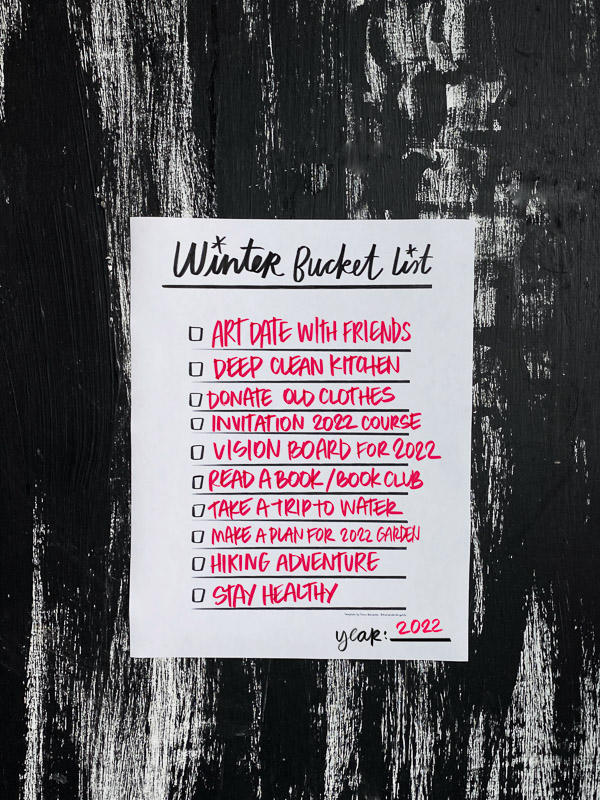 Winter Bucket List
ART DATE WITH FRIENDS
DEEP CLEAN KITCHEN
DONATE OLD CLOTHES
INVITATION 2022 COURSE
VISION BOARD FOR 2022
READ A BOOK/BOOK CLUB
TAKE A TRIP TO WATER
MAKE A PLAN FOR 2022 GARDEN
HIKING ADVENTURE
STAY HEALTHY
year: 2022